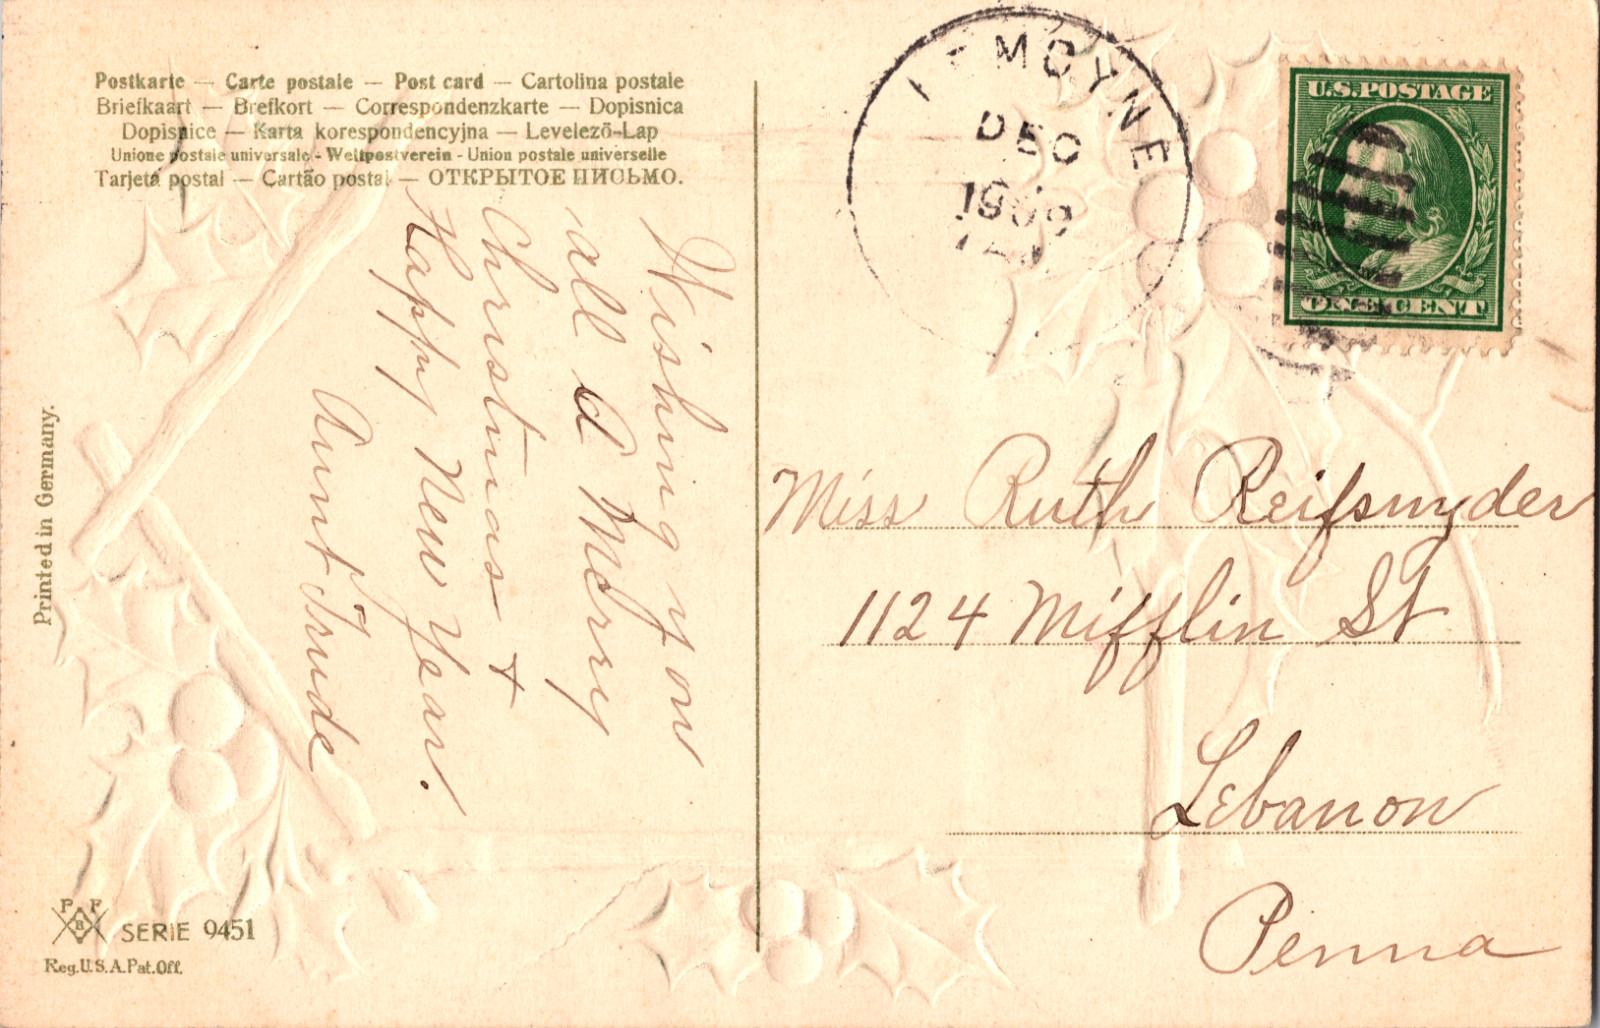 Postkarte — Carte postale — Post card — Cartolina postale
Briefkaart — Brefkort — Correspondenzkarte — Dopisnica
Dopisnice — Karta korespondencyjna — Levelező-Lap
Unione postale universale - Weltpostverein - Union postale universelle
Tarjeta postal — Cartão postal — ОТКРЫТОЕ ПИСЬМО.
Wishing you
all a Merry
Christmas +
Happy New Year.
Aunt Trude
Printed in Germany.
P F
B
SERIE 9451
Reg.U.S.A.Pat.Off.
LEMOYNE
DEC
1909
U.S.POSTAGE
ONE CENT
Miss Ruth Reifsnyder
1124 Mifflin St
Lebanon
Penna